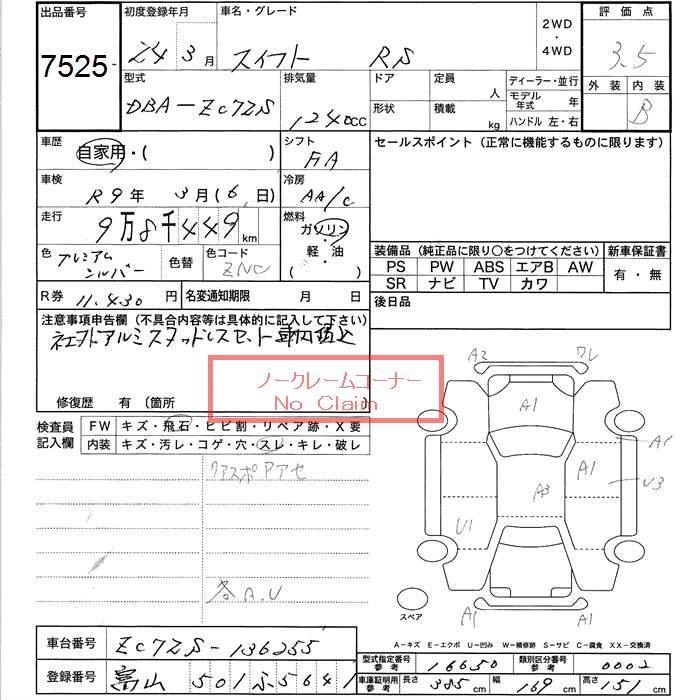 出品番号
7525
初度登録年月
24 3月
車名・グレード
スイフト RS
2WD
・
4WD
評価点
3.5
外装 内装
B
型式
DBA-ZC72S
排気量
1240cc
ドア
形状
定員 人
積載 kg
ディーラー・並行
モデル年式 年
ハンドル 左・右
車歴
自家用・( )
シフト
FA
セールスポイント (正常に機能するものに限ります)
車検
R9年 3月(6日)
冷房
AA/C
走行
9万8千449km
燃料
ガソリン
・
軽・油
( )
色
プレミアム
シルバー
色替
色コード
ZNC
装備品 (純正品に限り〇をつけてください)
PS PW ABS エアB AW
SR ナビ TV カワ
新車保証書
有・無
R券 11.430円
名変通知期限 月 日
後日品
注意事項申告欄 (不具合内容等は具体的に記入して下さい)
社外アルミスタッドレスセット車内積込
ノークレームコーナー
No Claim
修復歴 有 (箇所
検査員
記入欄
FW キズ・飛石・ヒビ割・リペア跡・X要
内装 キズ・汚レ・コゲ・穴・スレ・キレ・破レ
各A.U
A2 ワレ
A1
A1
A3 A1
U3
U1
A1 A1
スペア
A-キズ E-エクボ U-凹み W-補修跡 S-サビ C-腐食 XX-交換済
車台番号 ZC72S-136255
登録番号 富山 501ふ5641
型式指定番号 参考 16650
類別区分番号 参考 0002
車庫証明用 参考 長さ 385cm 幅 169cm 高さ 151cm